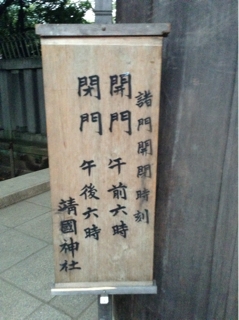 諸門開閉時刻
開門 午前六時
閉門 午後六時
靖國神社